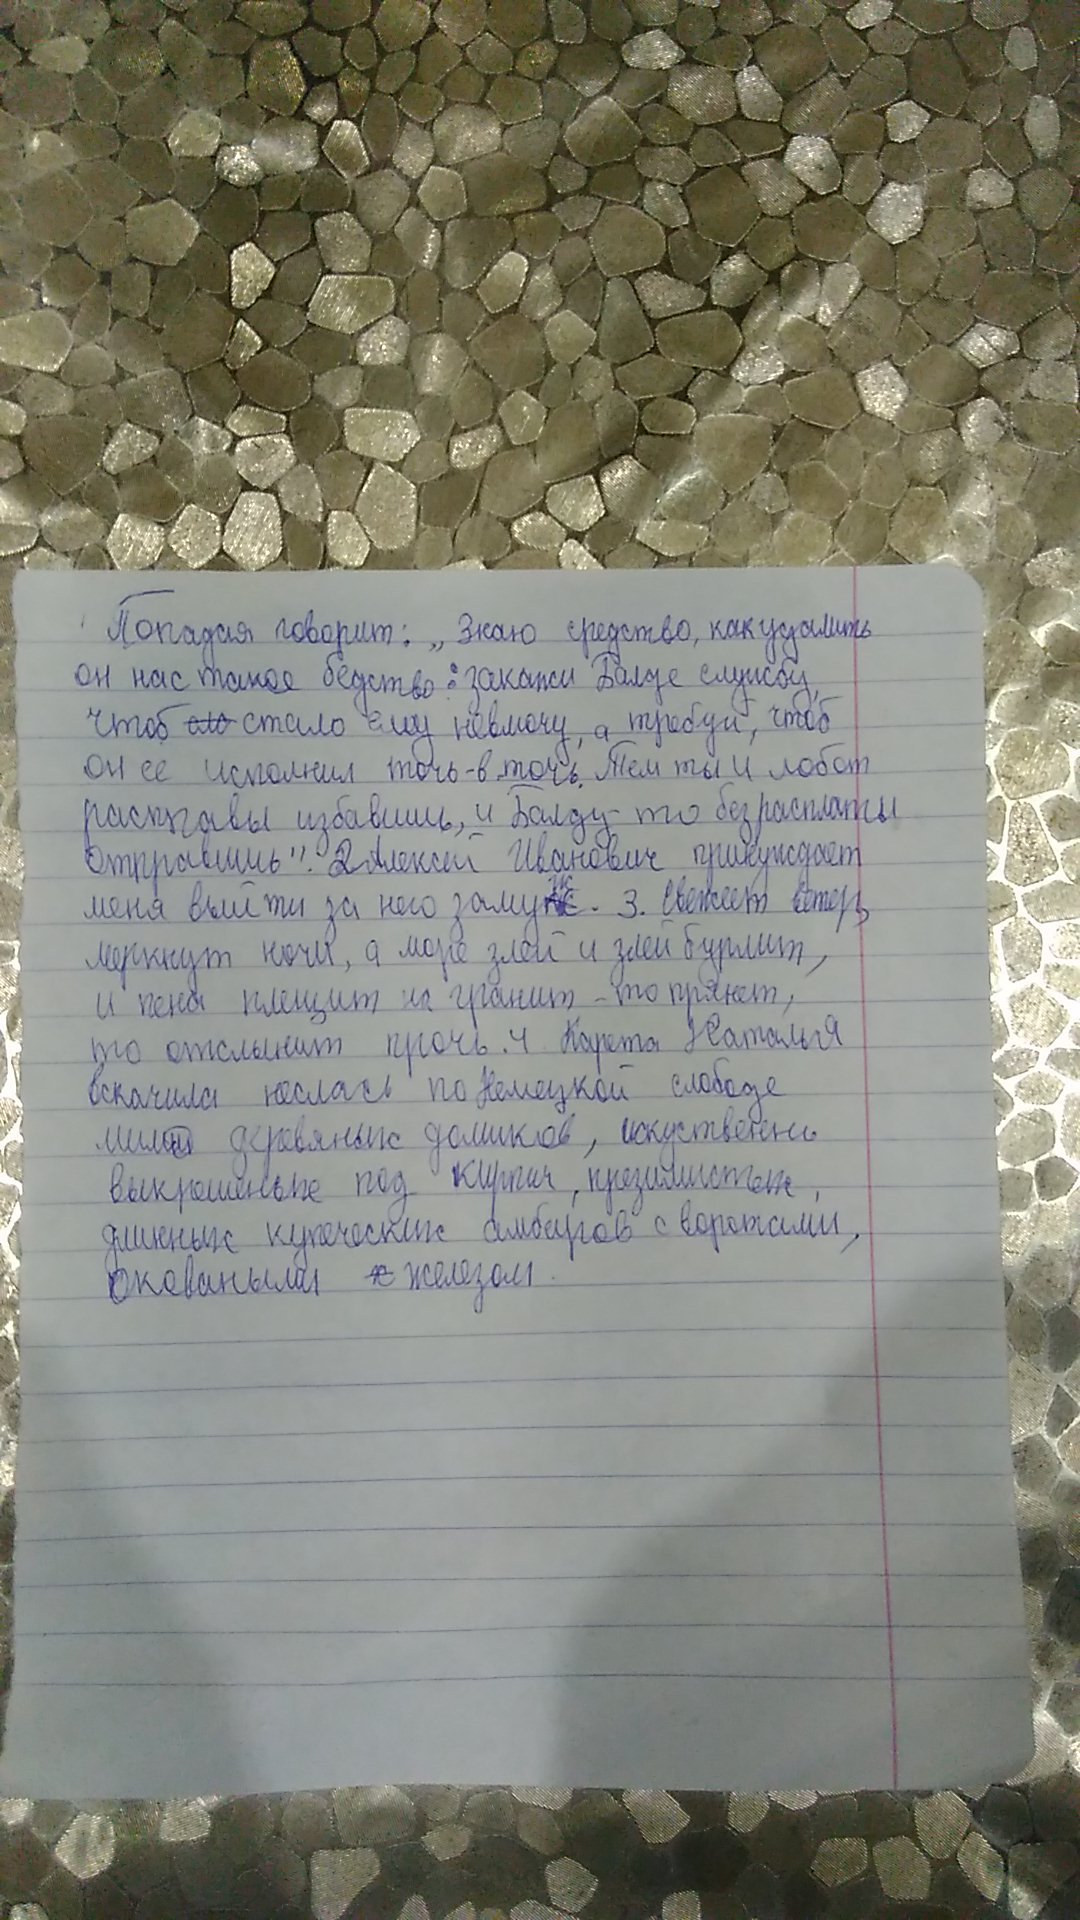 Попадая говорит: „Знаю средство, как удалить
он нас такое бедство: закажи Балде службу,
чтоб стало ему невмочу, а требуй, чтоб
он ее исполнил точь-в точь. Тем ты и лобот
расправы избавишь, и Балду-то без расплаты
отправишь". 2 Алексей Иванович принуждает
меня выйти за него замуж. 3. Свежеет ветер,
меркнут ночи, а море злей и злей бурлит,
и пена плещит на гранит - то прянет,
то отслынит прочь. 4 Карета Наталья
вскачила неслась по Немецкой слободе
мимо деревяных домиков, искуственно
выкрашеных под кирпич, презимистых,
длинных купеческих амбаров с воротами,
окованыли железом.